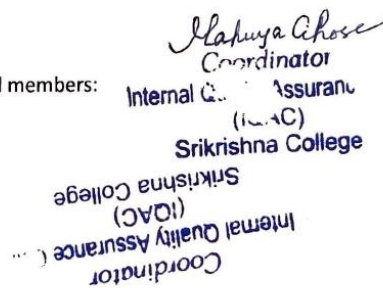 Mahuya Ghose
Coordinator
members:
Internal Assuran
Srikrishna College
Srikrishna College
(IQAC)
Internal Quality Assurance C
Coordinator